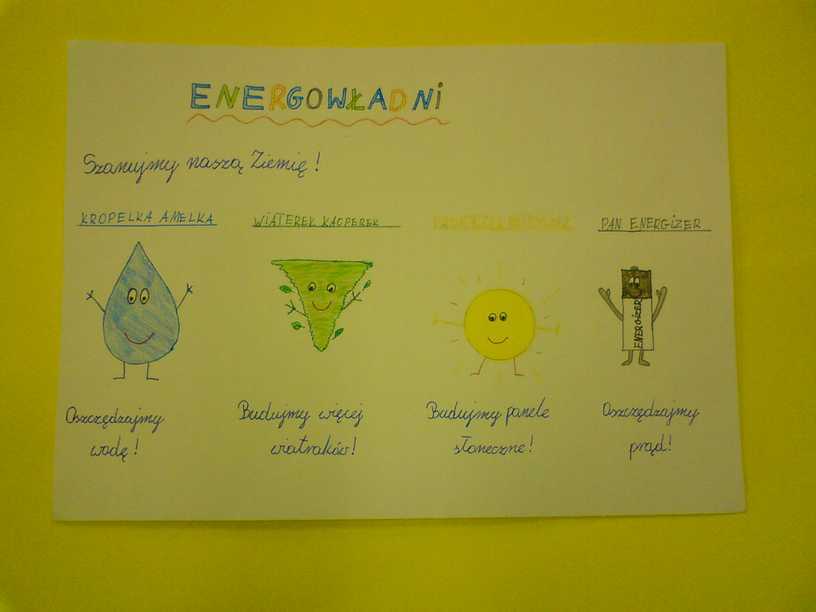 ENERGOWŁADNi
Szanujmy naszą Ziemię!
KROPELKA AMELKA WIATEREK KACPEREK PAN ENERGIZER
ENERGIZER
Oszczędzajmy Budujmy więcej Budujmy panele Oszczędzajmy
wodę! wiatraków! słoneczne! prąd!